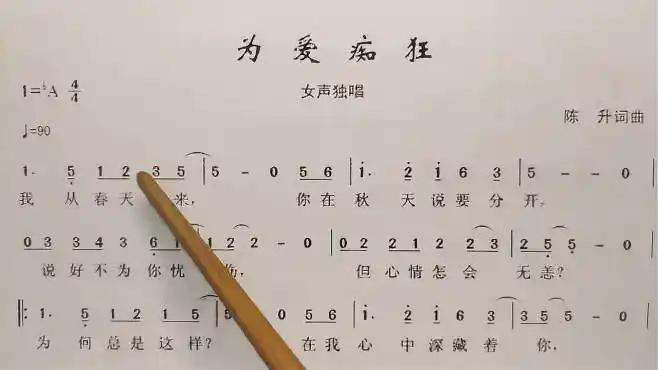 为爱痴狂
1=♭A 4/4
女声独唱
♩=90
陈 升词曲
1. 5 1 2 3 5 | 5 - 0 5 6 | 1. 2 1 6 5 3 | 5 - - 0 |
我 从春天 来, 你在秋 天说要分开,
0 3 3 4 3 6 1 | 1 2 2 - 0 | 0 2 2 1 2 2 3 | 2 5 5 - 0 |
说好不为你忧 伤, 但心情怎会 无恙?
‖: 1. 5 1 1 2 1 5 | 5 - 0 5 6 | 1. 2 1 6 5 3 | 3 5 5 - 0 |
为 何总是这样? 在我心 中深藏着 你,